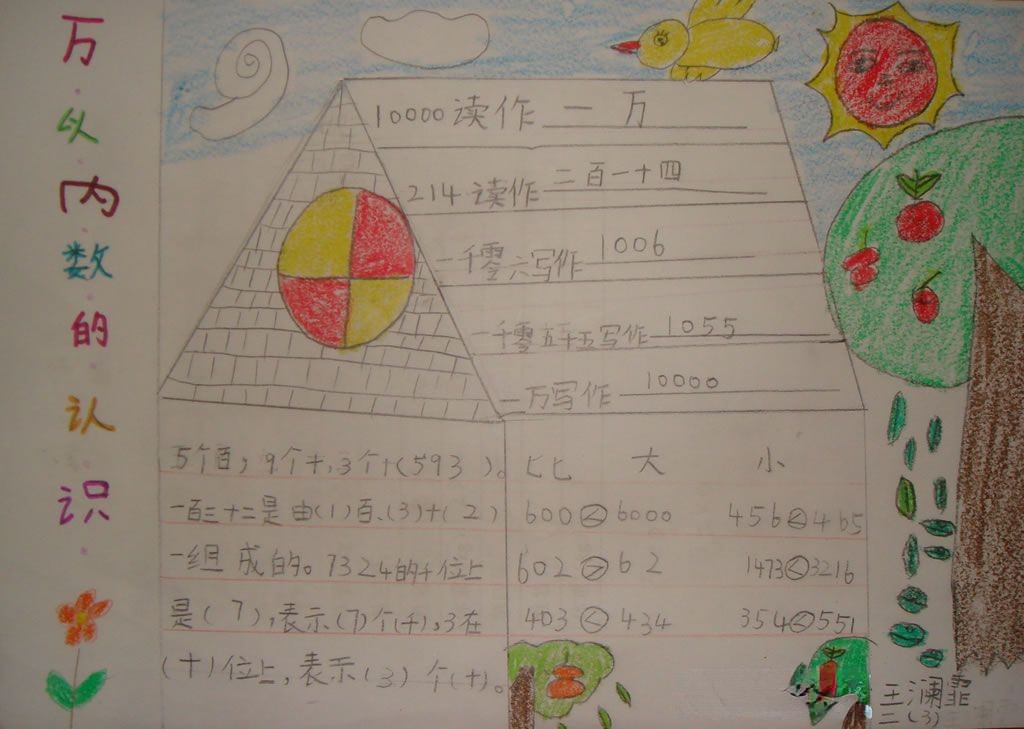 万以内数的认识
10000读作 一万
214读作 二百一十四
一千零六写作 1006
一千零五十五写作 1055
一万写作 10000
5个百,9个十,3个十(593)。
一百三十二是由(1)百、(3)十(2)
一组成的。7324的千位上
是(7),表示(7)个(千),3在
(十)位上,表示(3)个(十)。
比 大 小
600<6000 456<465
602>62 1473<3216
403<434 354<551
王澜霏
二(3)